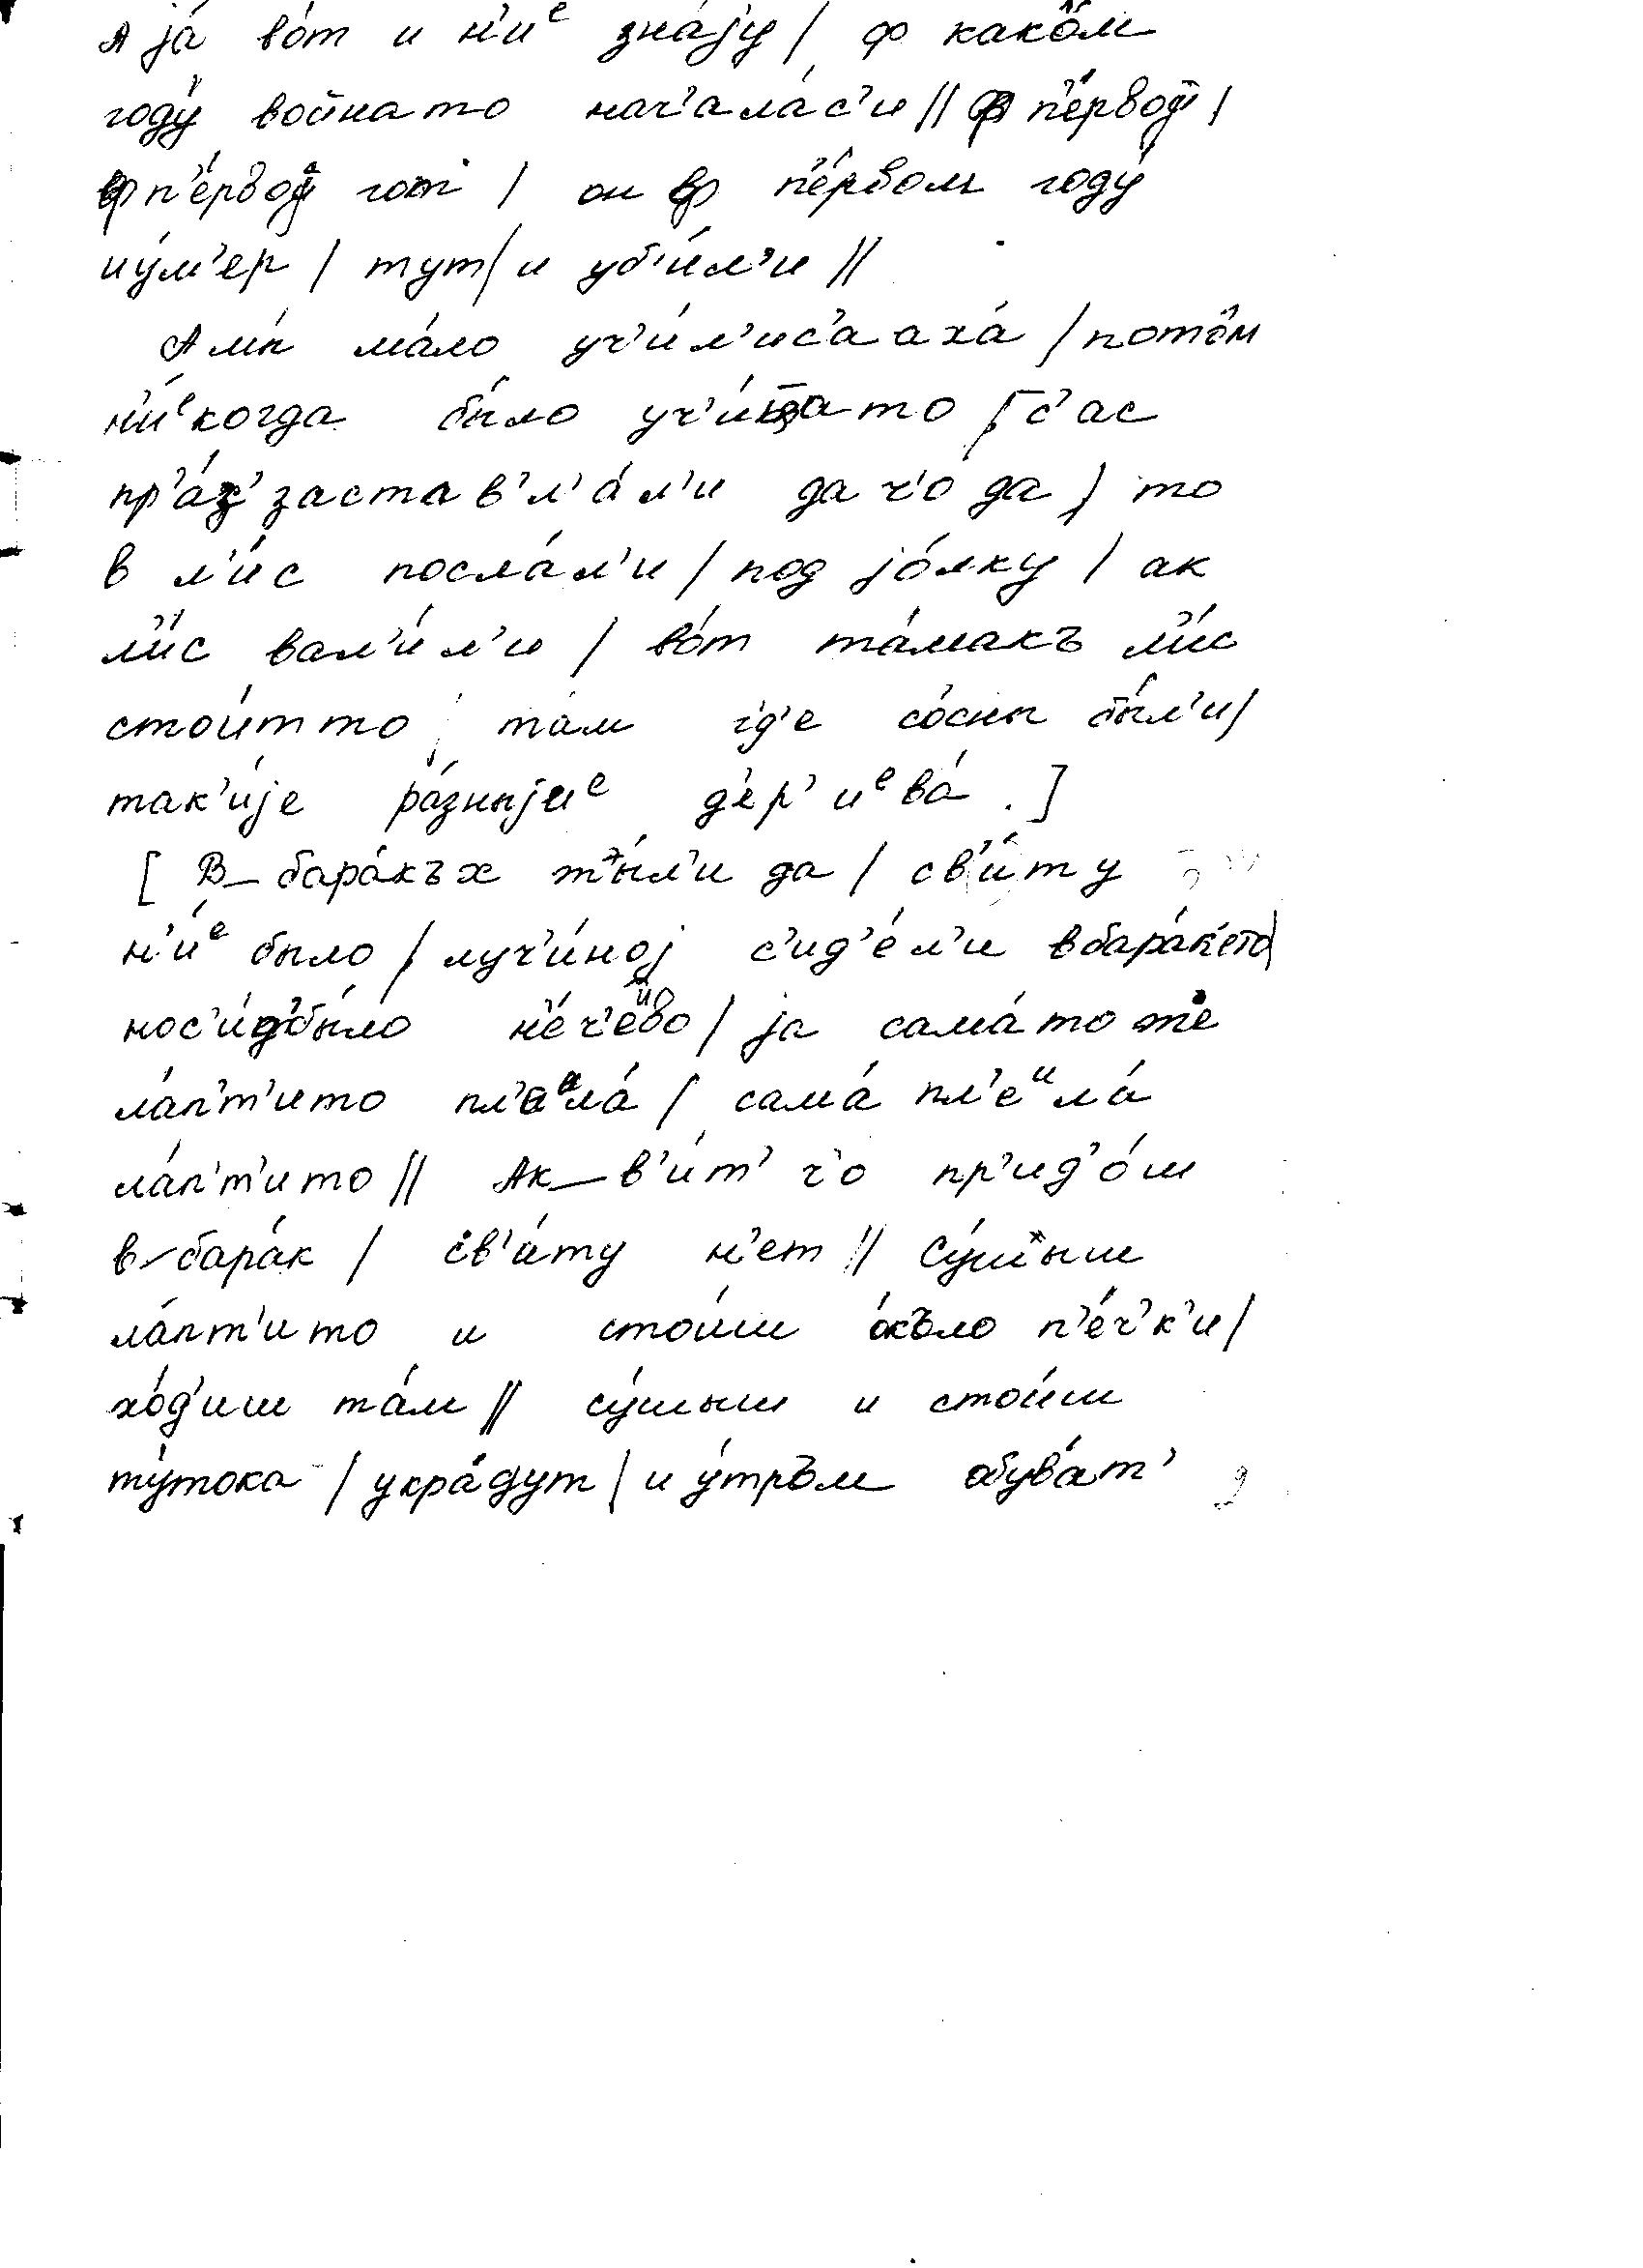 А jа́ во́т и н'иᵉ зна́jу / ф како̂м
году́ война то нач'ала́с'и // ф п'е́рвой /
ф п'е́рвой гот / он ф п'е́рвом году́
иу́м'ер / тут / и уб'и́л'и //
А мы ма́ло уч'и́л'ис'а аха́ / пото̂м
н'и́ᵉкогда бы́ло уч'и́ца то [с'ас
пр'а́з' застав'л'а́л'и да ч'о́ да / то
в л'ис посла́л'и / под jо́лку / ак
л'и́с вал'и́л'и / во́т та́макъ л'и́с
стои́т то / та́м гд'е со́сны бы́л'и /
так'и́jе ра́зныjиᵉ д'ер'иᵉва́ .]
[ В_бара́къх жы́л'и да / св'и́ту
н'и́ᵉ было / луч'и́ноj с'ид'е́л'и в бара́к'ето /
нос'и́д'бы́ло н'е́ч'ево / jа сама́ то же
ла́п'т'ито пл'еᵃла́ / сама́ пл'еᴻла́
ла́п'т'ито // Ак_в'и́т' ч'о пр'ид'о́ш
в_бара́к / св'а́ту н'ет // Су́шыш
ла́пт'ито и стои́ш о́къло п'е́ч'к'и /
хо́д'иш та́м // су́шыш и стои́ш
ту́тока / украду́т / и у́тръм обува́т'